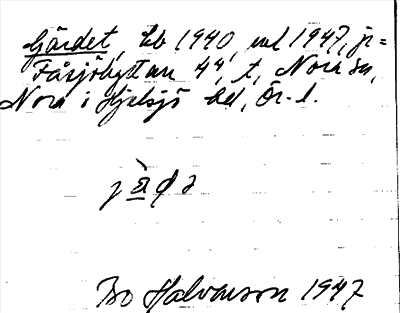 Gärdet, bb 1940, ml 1947, jr=
Fåsjöhyttan 4⁴, t, Nora sn,
Nora i Hjelsjö bd, Ör. l.
Bo Halvarson 1947